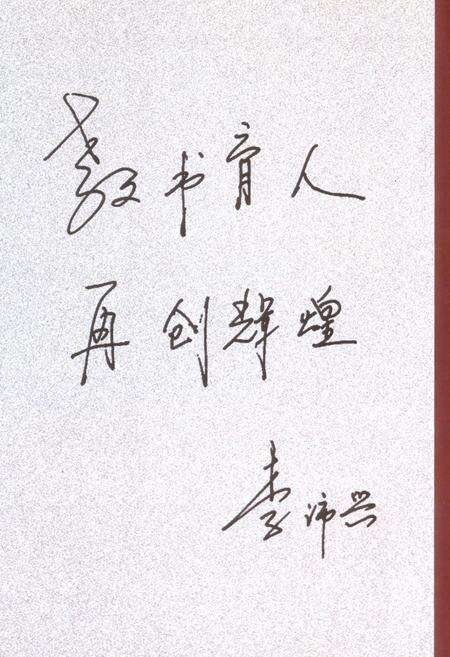 教书育人
再创辉煌
李沛兴